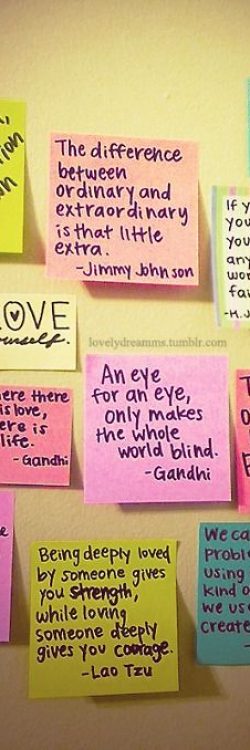 The difference
between
ordinary and
extraordinary
is that little
extra.
-Jimmy Johnson
If y
you
you
any
wor
fai
-M.J
LOVE
yourself.
lovelydreamms.tumblr.com
ere there
is love,
ere is
life.
-Gandhi
An eye
for an eye,
only makes
the whole
world blind.
-Gandhi
Being deeply loved
by someone gives
you strength,
while loving
someone deeply
gives you courage.
-Lao Tzu
We ca
probl
using
kind o
we us
create